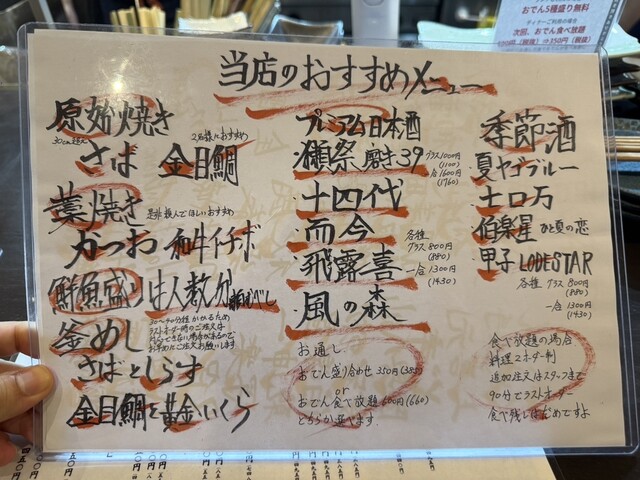 当店のおすすめメニュー
原始焼き
30cm超え
2名様におすすめ
さば 金目鯛
藁焼き
是非頼んでほしいおすすめ
カつお 和牛イチボ
鮮魚盛り は人数分
釜めし
30〜40分程かかるため
ラストオーダー時のご注文は
対応できない場合があるので
お早めにご注文お願いします
さばとしらす
金目鯛と黄金いくら
プレミアム日本酒
・獺祭 磨き39
グラス1000円
(1100)
一合1600円
(1760)
・十四代
・而今
・飛露喜
・風の森
各種
グラス800円
(880)
一合1300円
(1430)
お通し
おでん盛り合わせ 350円(385)
or
おでん食べ放題 600円(660)
どちらか選べます
季節酒
夏ヤゴブルー
土田万
伯楽星 ひと夏の恋
甲子 LODESTAR
各種 グラス800円
(880)
一合1300円
(1430)
食べ放題の場合
料理2オーダー制
追加注文はスタッフまで
90分でラストオーダー
食べ残しはだめですよ
おでん5種盛り無料
ディナーご利用の場合
次回、おでん食べ放題